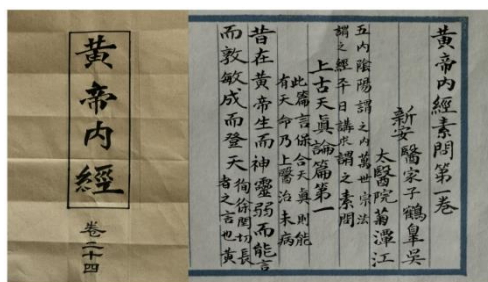 黄帝内經
卷二十四
黄帝内經素問第一卷
新安醫家子鶴皋吳
太醫院菊潭江
五内陰陽謂之内萬世宗法
謂之經平日講求謂之素問
上古天真論篇第一
此篇言保合天真則能
有天命乃上醫治未病
昔在黄帝生而神靈弱而能言
而敦敏成而登天
徇徐閏切長
者之言也黄